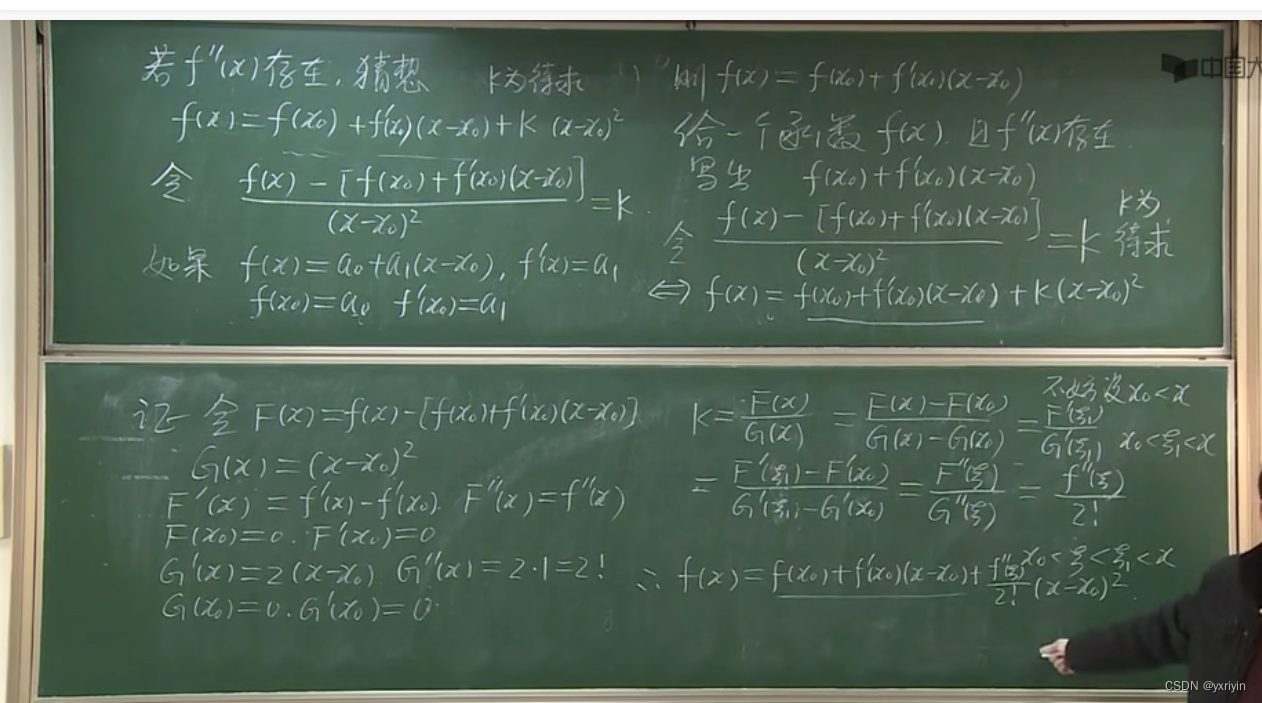 若 f''(x)存在, 猜想 k为待求
f(x)=f(x₀)+f'(x₀)(x-x₀)+k (x-x₀)²
令 f(x)-[f(x₀)+f'(x₀)(x-x₀)] / (x-x₀)² = k.
如果 f(x)=a₀+a₁(x-x₀), f'(x)=a₁
f(x₀)=a₀ f'(x₀)=a₁
则 f(x)=f(x₀)+f'(x₀)(x-x₀)
给一个函数 f(x). 且f''(x)存在.
写出 f(x₀)+f'(x₀)(x-x₀)
令 f(x)-[f(x₀)+f'(x₀)(x-x₀)] / (x-x₀)² = k k为待求
⇔ f(x)=f(x₀)+f'(x₀)(x-x₀)+k(x-x₀)²
证 令 F(x)=f(x)-[f(x₀)+f'(x₀)(x-x₀)]
G(x)=(x-x₀)²
F'(x)=f'(x)-f'(x₀). F''(x)=f''(x)
F(x₀)=0. F'(x₀)=0
G'(x)=2(x-x₀) G''(x)=2·1=2!
G(x₀)=0. G'(x₀)=0.
不妨设x₀<x
k=F(x)/G(x) = F(x)-F(x₀)/G(x)-G(x₀) = F'(ξ₁)/G'(ξ₁) x₀<ξ₁<x
= F'(ξ₁)-F'(x₀)/G'(ξ₁)-G'(x₀) = F''(ξ)/G''(ξ) = f''(ξ)/2!
x₀<ξ<ξ₁<x
∴ f(x)=f(x₀)+f'(x₀)(x-x₀)+f''(ξ)/2!(x-x₀)².
中国大
CSDN @yxriyin